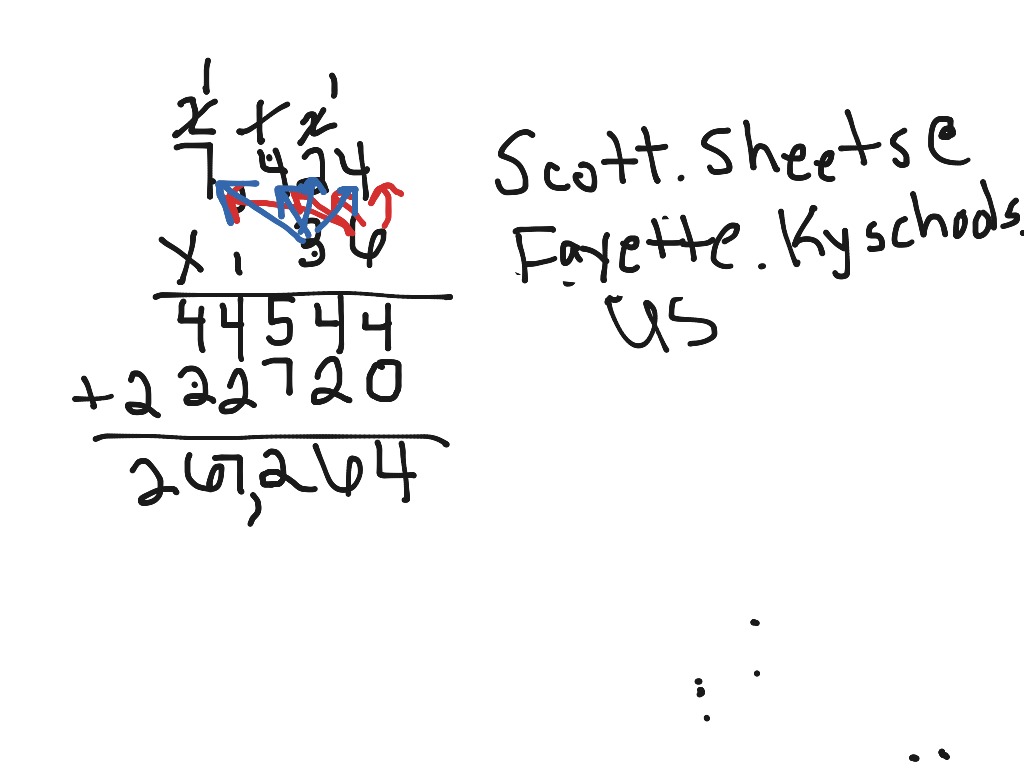 1 1
2 1 2
7,424
x 36
44544
+ 222720
267,264
Scott.sheets@
Fayette.Kyschools.
us